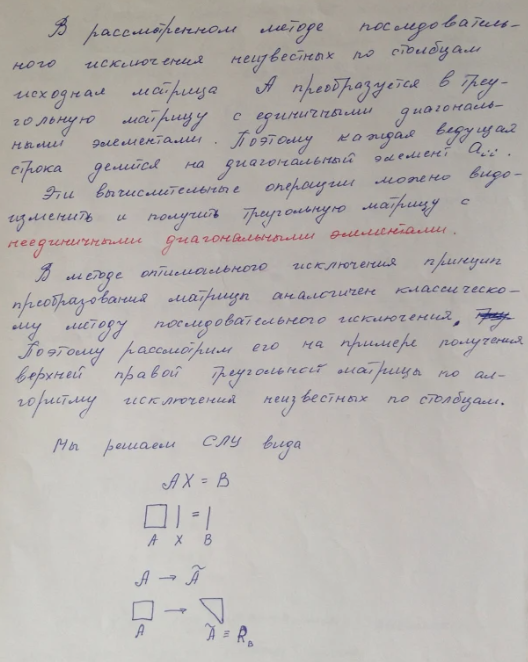 В рассмотренном методе последователь-
ного исключения неизвестных по столбцам
исходная матрица А преобразуется в треу-
гольную матрицу с единичными диагональ-
ными элементами. Поэтому каждая ведущая
строка делится на диагональный элемент aᵢᵢ.
Эти вычислительные операции можно видо-
изменить и получить треугольную матрицу с
неединичными диагональными элементами.
В методе оптимального исключения принцип
преобразования матрицы аналогичен классическо-
му методу последовательного исключения.
Поэтому рассмотрим его на примере получения
верхней правой треугольной матрицы по ал-
горитму исключения неизвестных по столбцам.
Мы решаем СЛУ вида
AX = B
=
A X B
A → Ã
→
A Ã ≡ Rᵦ